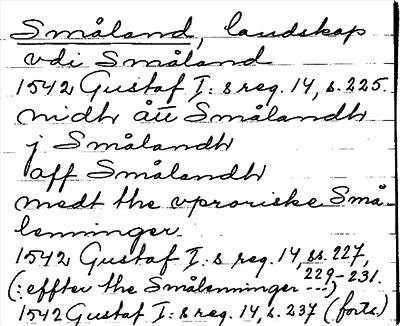 Småland, landskap
vdi Småland
1542 Gustaf I: s reg. 14, s. 225.
nidh åt Smålandh
j Smålandh
aff Smålandh
medt the vproriske Små-
lenninger
1542 Gustaf I: s reg. 14, ss. 227,
229-231.
(: effter the Smålenninger ---)
1542 Gustaf I: s reg. 14, s. 237 (forts.)